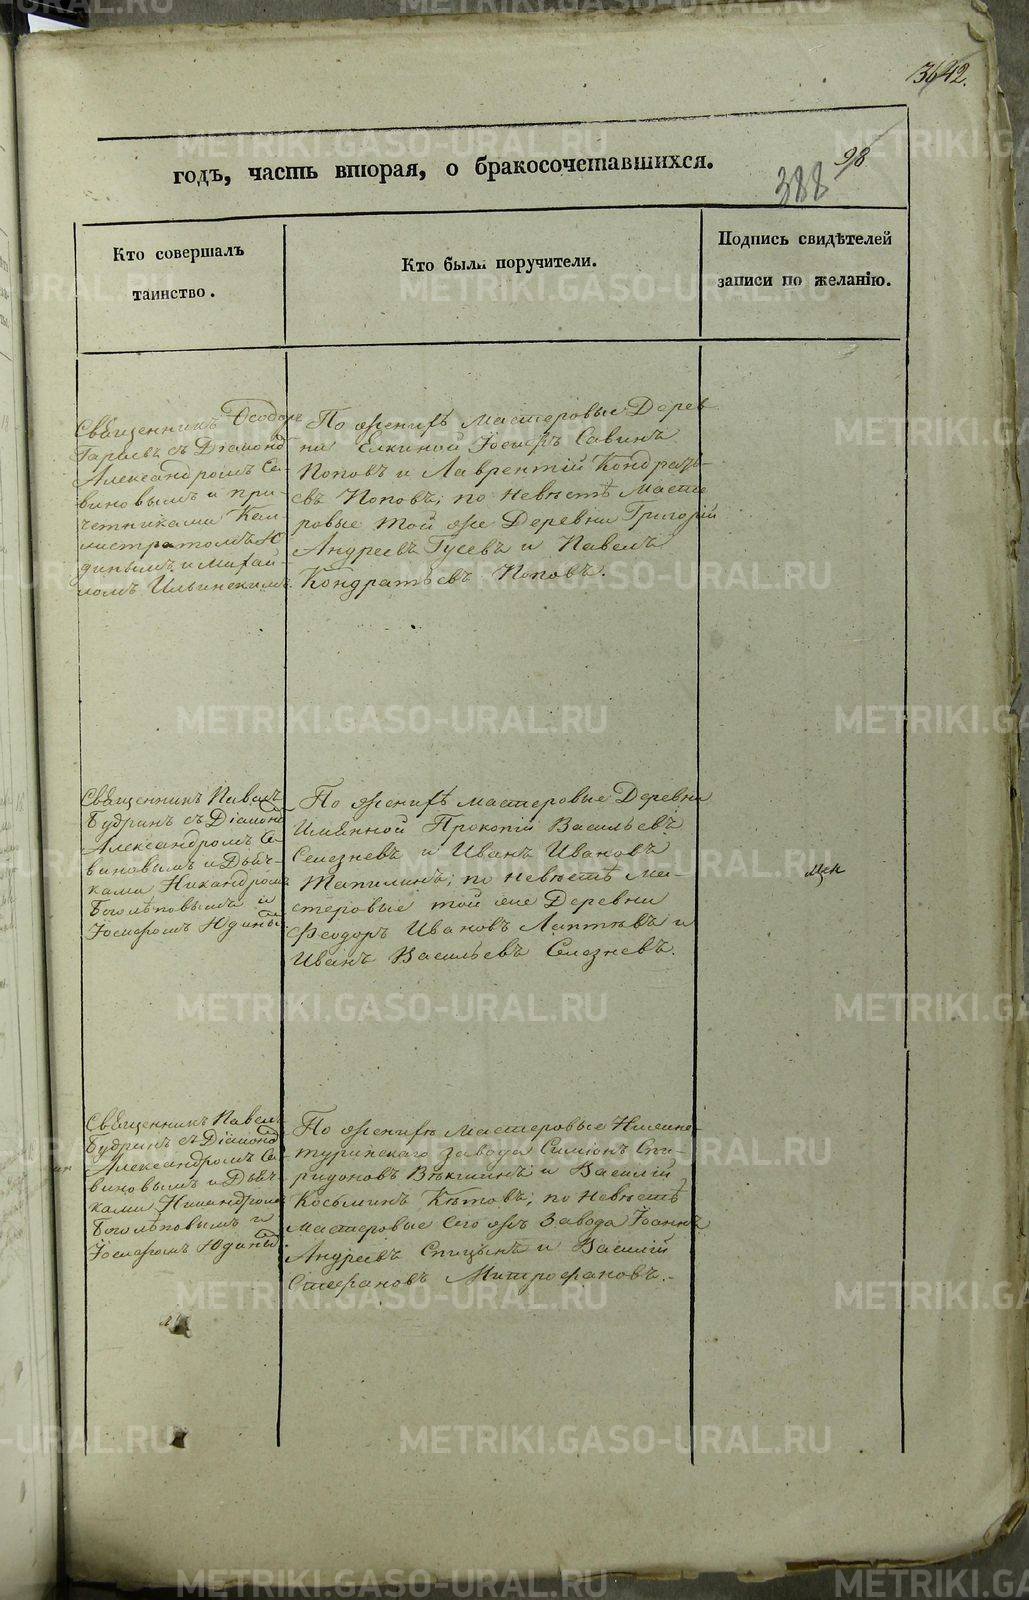 3642.
98
388
годъ, часть вторая, о бракосочетавшихся.
Кто совершалъ
таинство.
Кто были поручители.
Подпись свидѣтелей
записи по желанію.
Священникъ Ѳеодоръ
съ Діакономъ
Александромъ Са-
виновымъ и при-
четниками Кал-
листратомъ Ю
динымъ и Михаи-
ломъ Ильинскимъ.
По женихѣ мастеровые Дерев
ни Елкиной Іосифъ Савинъ
Поповъ и Лаврентій Кондрать-
евъ Поповъ; по невѣстѣ масте
ровые той же Деревни Григорій
Андреевъ Гусевъ и Павелъ
Кондратьевъ Поповъ.
Священникъ Павелъ
Будринъ съ Діакономъ
Александромъ Са-
виновымъ и Дьяч-
ками Никандромъ
Боголѣповымъ и
Іосифомъ Юдинымъ
По женихѣ мастеровые Деревни
Имянной Прокопій Васильевъ
Селезневъ и Иванъ Ивановъ
Тапилинъ; по невѣстѣ ма-
стеровые той же Деревни
Феодоръ Ивановъ Лаптевъ и
Иванъ Васильевъ Селезневъ.
Священникъ Павелъ
Будринъ съ Діакономъ
Александромъ Са-
виновымъ и Дьяч-
ками Никандромъ
Боголѣповымъ и
Іосифомъ Юдинымъ
По женихѣ мастеровые Нижне-
туринскаго завода Симіонъ Спи-
ридоновъ и Василій
Косьминъ Кѣтовъ; по невѣстѣ
мастеровые сего жъ завода Іоаннъ
Андреевъ Спицынъ и Василій
Стефановъ Митрофановъ.
METRIKI.GASO-URAL.RU